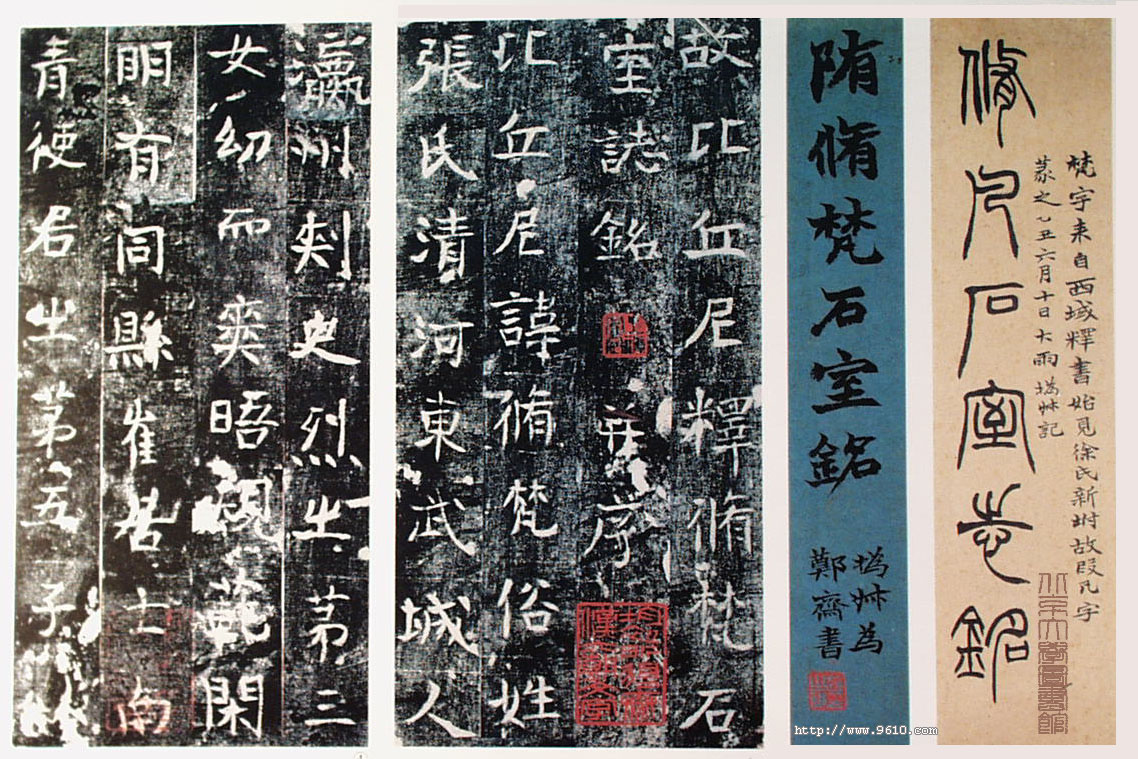 脩凡石室志銘
梵字来自西域釋書始見徐氏新坿故叚凡字
篆之乙丑六月十日大雨撝尗記
陏脩梵石室銘
撝尗為
鄭齋書
故比丘尼釋脩梵石
室誌銘并序
比丘尼諱脩梵俗姓
張氏清河東武城人
瀛州刺史烈之第三
女幼而爽晤規範閑
明有同縣崔居士南
青使君之第五子
http://www.9610.com